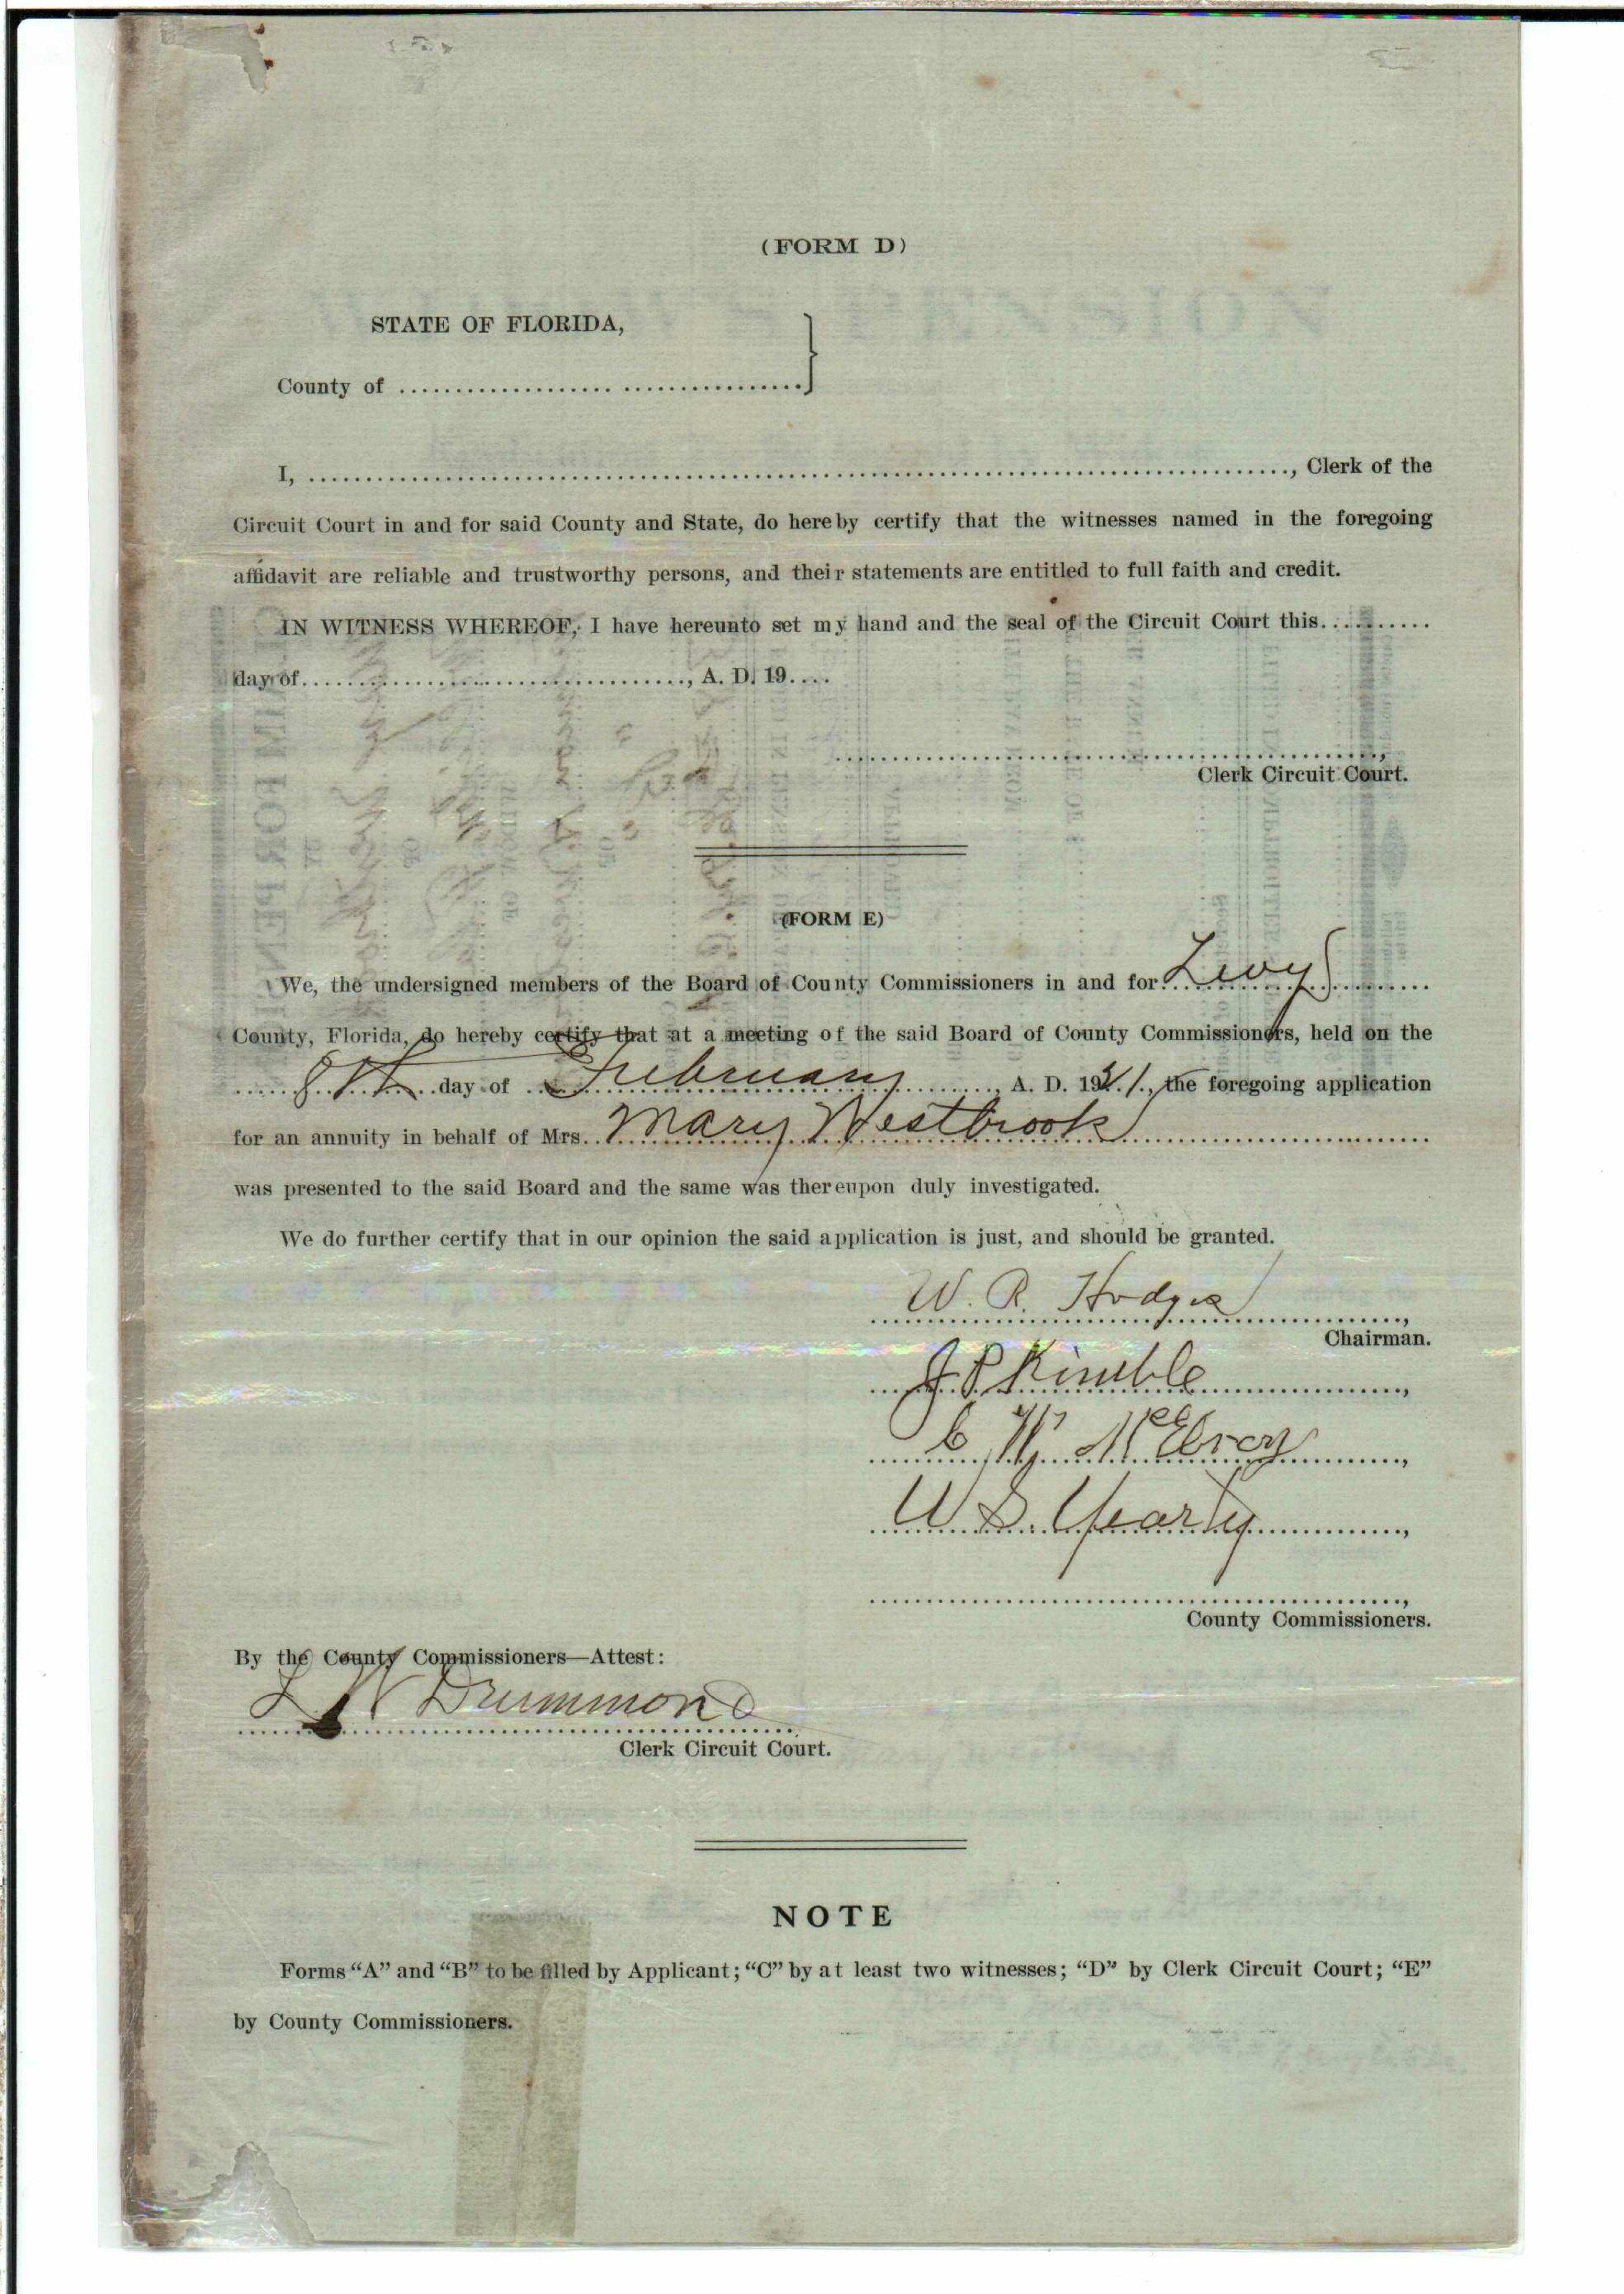 (FORM D)
STATE OF FLORIDA,
County of
I, , Clerk of the
Circuit Court in and for said County and State, do hereby certify that the witnesses named in the foregoing
affidavit are reliable and trustworthy persons, and their statements are entitled to full faith and credit.
IN WITNESS WHEREOF, I have hereunto set my hand and the seal of the Circuit Court this
day of , A. D. 19
Clerk Circuit Court.
(FORM E)
We, the undersigned members of the Board of County Commissioners in and for Levy
County, Florida, do hereby certify that at a meeting of the said Board of County Commissioners, held on the
8th day of February, A. D. 1921, the foregoing application
for an annuity in behalf of Mrs. Mary Westbrook
was presented to the said Board and the same was thereupon duly investigated.
We do further certify that in our opinion the said application is just, and should be granted.
W. R. Hodges
Chairman.
J P Kimble
C. W. McElroy
W S. Yearty
County Commissioners.
By the County Commissioners—Attest:
L W Drummond
Clerk Circuit Court.
NOTE
Forms "A" and "B" to be filled by Applicant; "C" by at least two witnesses; "D" by Clerk Circuit Court; "E"
by County Commissioners.